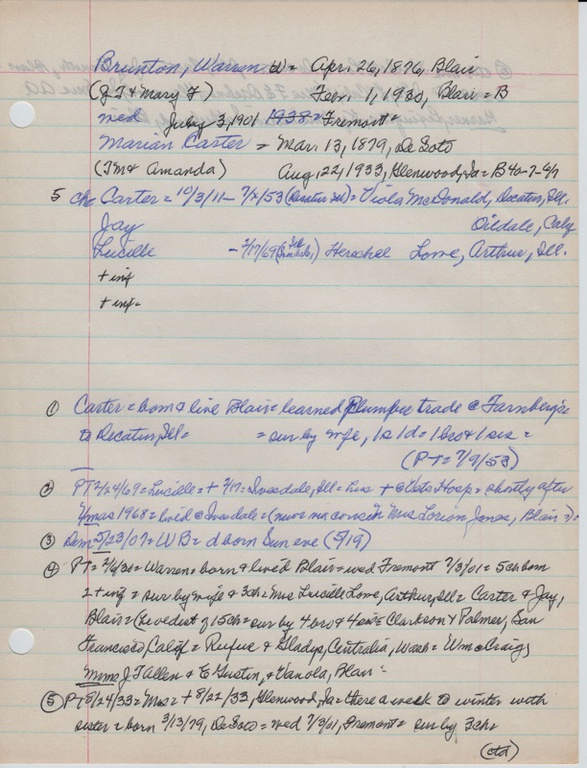 Brunton, Warren W = Apr. 26, 1876, Blair
(J T & Mary F) Febr. 1, 1930, Blair = B
wed July 3, 1901 Fremont =
Marian Carter = Mar. 13, 1879, De Soto
(J M & Amanda) Aug. 22, 1933, Glenwood, Ia = B
5 ch Carter = 10/3/11 - 7/2/53 (Decatur Ill) = Viola McDonald, Decatur, Ill.
Jay Oildale, Calif
Lucille - 2/17/69 Herschel Love, Arthur, Ill.
+ inf
+ inf.
① Carter = born & live Blair = learned Plumber trade @
to Decatur, Ill = = sur by wife, 1s 1d = 1 bro & 1 sis =
(PT = 7/9/53)
② PT 2/24/69 = Lucille = + 2/17 = Ivesdale, Ill = + @ Vets Hosp = shortly after
Xmas 1968 = lived @ Ivesdale = (news in cousin Mrs Lorion Jones, Blair) =
③ Dem 5/23/07 = W B = d born Sun eve (5/19)
④ PT = 2/6/30 = Warren = born & lived Blair = wed Fremont 7/3/01 = 5 ch born
2 + inf = sur by wife & 3 ch = Mrs Lucille Love, Arthur, Ill = Carter & Jay,
Blair = (the oldest of 15 ch = sur by 4 bro & 4 sis = Clarkson & Palmer, San
Francisco, Calif = Rufus & Gladys, Centralia, Wash = Wm Craig,
Mmes J T Allen & E Gustin, & Vanola, Blair =
⑤ PT 8/24/33 = Mrs = + 8/22/33, Glenwood, Ia = there a week to winter with
sister = born 3/13/79, De Soto = wed 7/3/01, Fremont = sur by 3 ch =
(ctd)